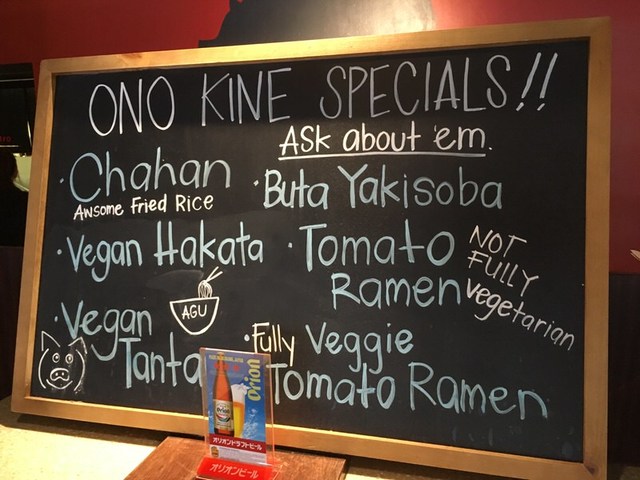 ONO KINE SPECIALS!!
ASk about 'em.
· Chahan
AWsome Fried Rice
· Buta Yakisoba
· Vegan Hakata
· Tomato Ramen
NOT FULLY vegetarian
· Vegan
AGU
· Fully Veggie Tomato Ramen
Orion
オリオンドラフトビール
オリオンビール